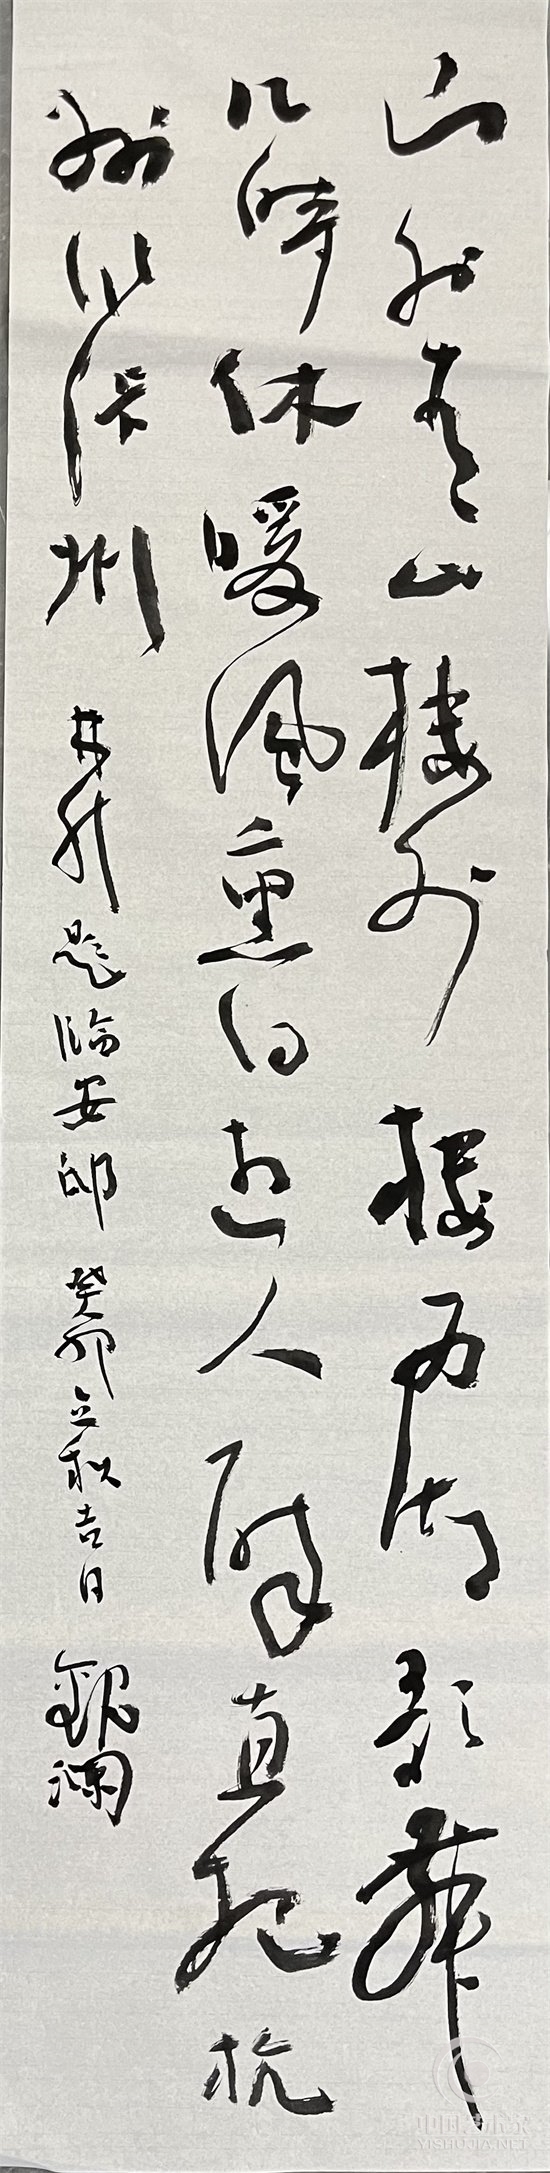 山外青山楼外楼西湖歌舞
几时休暖风熏得游人醉直把杭
州作汴州 林升题临安邸 癸卯立秋吉日
YISHUJIA.NET